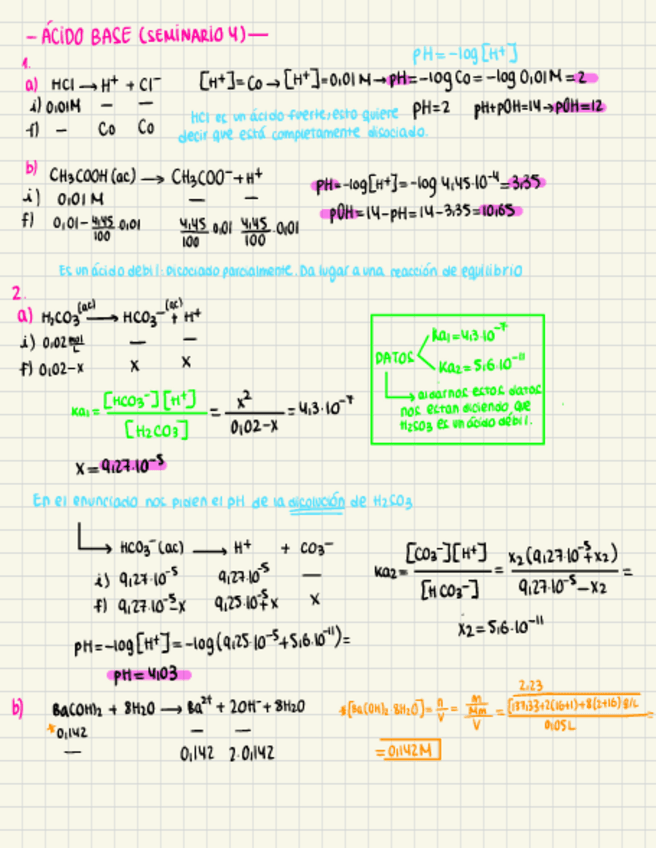 - ÁCIDO BASE (SEMINARIO 4) -
pH = -log[H+]
1.
a) HCl → H+ + Cl- [H+] = Co → [H+] = 0,01M → pH = -log Co = -log 0,01M = 2
i) 0,01M — —
f) — Co Co
HCl es un ácido fuerte, esto quiere
decir que está completamente disociado.
pH=2 pH+pOH=14 → pOH=12
b) CH3COOH (ac) → CH3COO- + H+
i) 0,01 M — —
f) 0,01 - 4,45/100 · 0,01 4,45/100 · 0,01 4,45/100 · 0,01
pH = -log[H+] = -log 4,45·10^-4 = 3,35
pOH = 14 - pH = 14 - 3,35 = 10,65
Es un ácido débil: Disociado parcialmente. Da lugar a una reacción de equilibrio
2.
a) H2CO3 (ac) → HCO3- (ac) + H+
i) 0,02 mol/L — —
f) 0,02-x x x
DATOS
Ka1 = 4,3·10^-7
Ka2 = 5,6·10^-11
→ al darnos estos datos
nos estan diciendo que
H2CO3 es un ácido débil.
Ka1 = [HCO3-][H+] / [H2CO3] = x^2 / 0,02-x = 4,3·10^-7
x = 9,27·10^-5
En el enunciado nos piden el pH de la disolución de H2CO3
→ HCO3- (ac) → H+ + CO3-
i) 9,27·10^-5 9,27·10^-5 —
f) 9,27·10^-5-x 9,25·10^-5+x x
Ka2 = [CO3-][H+] / [HCO3-] = x2(9,27·10^-5+x2) / 9,27·10^-5-x2 =
x2 = 5,6·10^-11
pH = -log[H+] = -log(9,25·10^-5+5,6·10^-11) =
pH = 4,03
b) Ba(OH)2 + 8H2O → Ba2+ + 2OH- + 8H2O
*0,142 — —
— 0,142 2·0,142
*[Ba(OH)2·8H2O] = n/V = m/Mm / V = 2,23 / [137,33+2(16+1)+8(2+16)] g/L / 0,05L =
= 0,142M